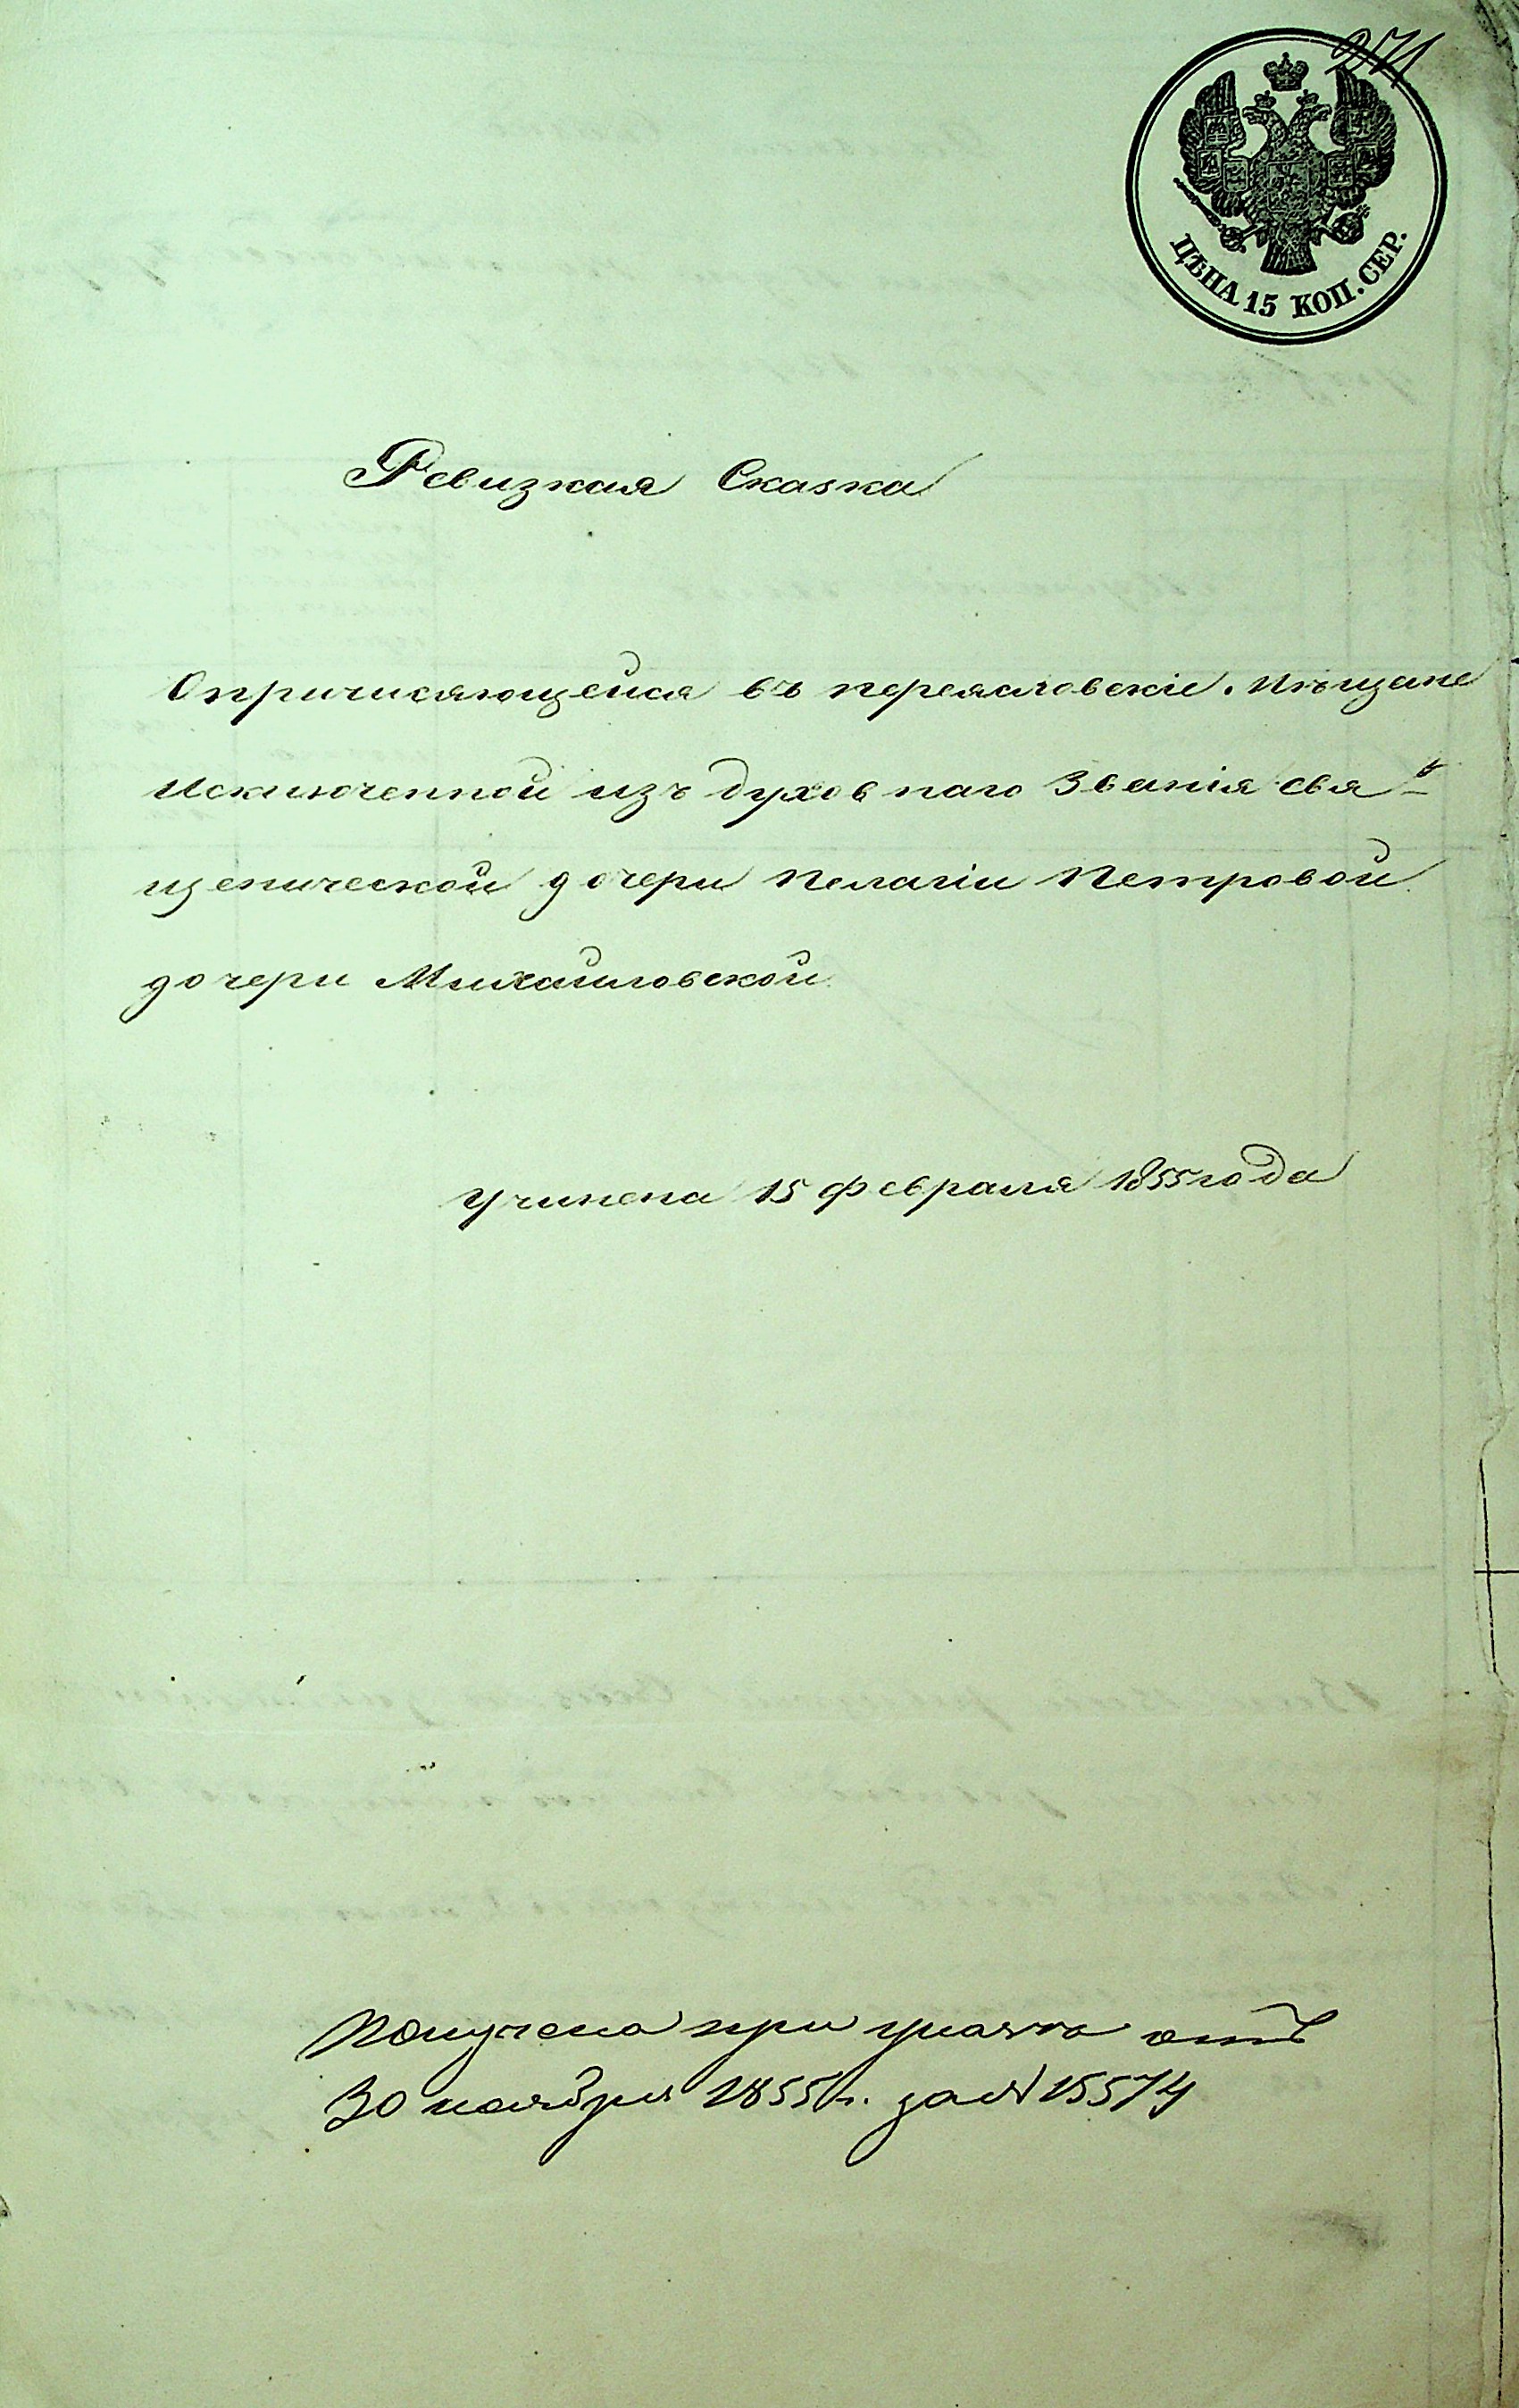 271
ЦѢНА 15 КОП. СЕР.
Ревизкая Сказка
Опричисляющейся въ переясловскіе. мѣщане
исключенной изъ духовнаго Званія свя-
щенической дочери Пелагіи Петровой
дочери Михайловской
учинена 15 февраля 1855 года
Получена при указѣ отъ
30 ноября 1855 г. за № 15574